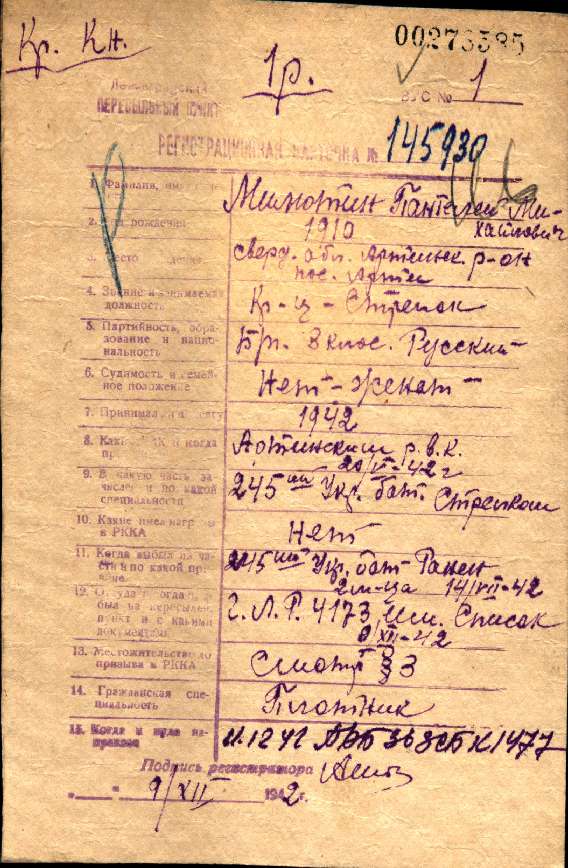 Кр. Кн.
00273585
1р.
ВУС № 1
Ленинградский
ПЕРЕСЫЛЬНЫЙ ПУНКТ
РЕГИСТРАЦИОННАЯ КАРТОЧКА № 145930
1. Фамилия, имя
Милютин Пантелей Ми-
хайлович
2. рождения
1910
3. Место дения
Сверд. обл. Артинск. р-он
пос. Арти
4. Звание и занимаемая
должность
Кр-ц - Стрелок
5. Партийность, обра-
зование и нацио-
нальность
Бп. 3 клас. Русский
6. Судимость и семей-
ное положение
Нет - женат -
7. Принимал
1942
8. Каким РВК и когда
пр
Артинский р.в.к.
9. В какую часть за-
числен и по какой
специальности
245 ый Укр. бат. Стрелком
10. Какие имел награды
в РККА
Нет
11. Когда выбыл из ча-
сти и по какой при-
чине
245 ый Укр. бат Ранен
14/VII-42
12. Откуда и когда при-
был на пересыльн.
пункт и с какими
документами
Г.Л.Р. 4173, Им. Список
9/XII-42
13. Местожительство до
призыва в РККА
Смотр § 3
14. Гражданская спе-
циальность
Плотник
15. Когда и куда на-
правлен
11.12 42
К 1477
Подпись регистратора
"—" 9/XII 1942г.